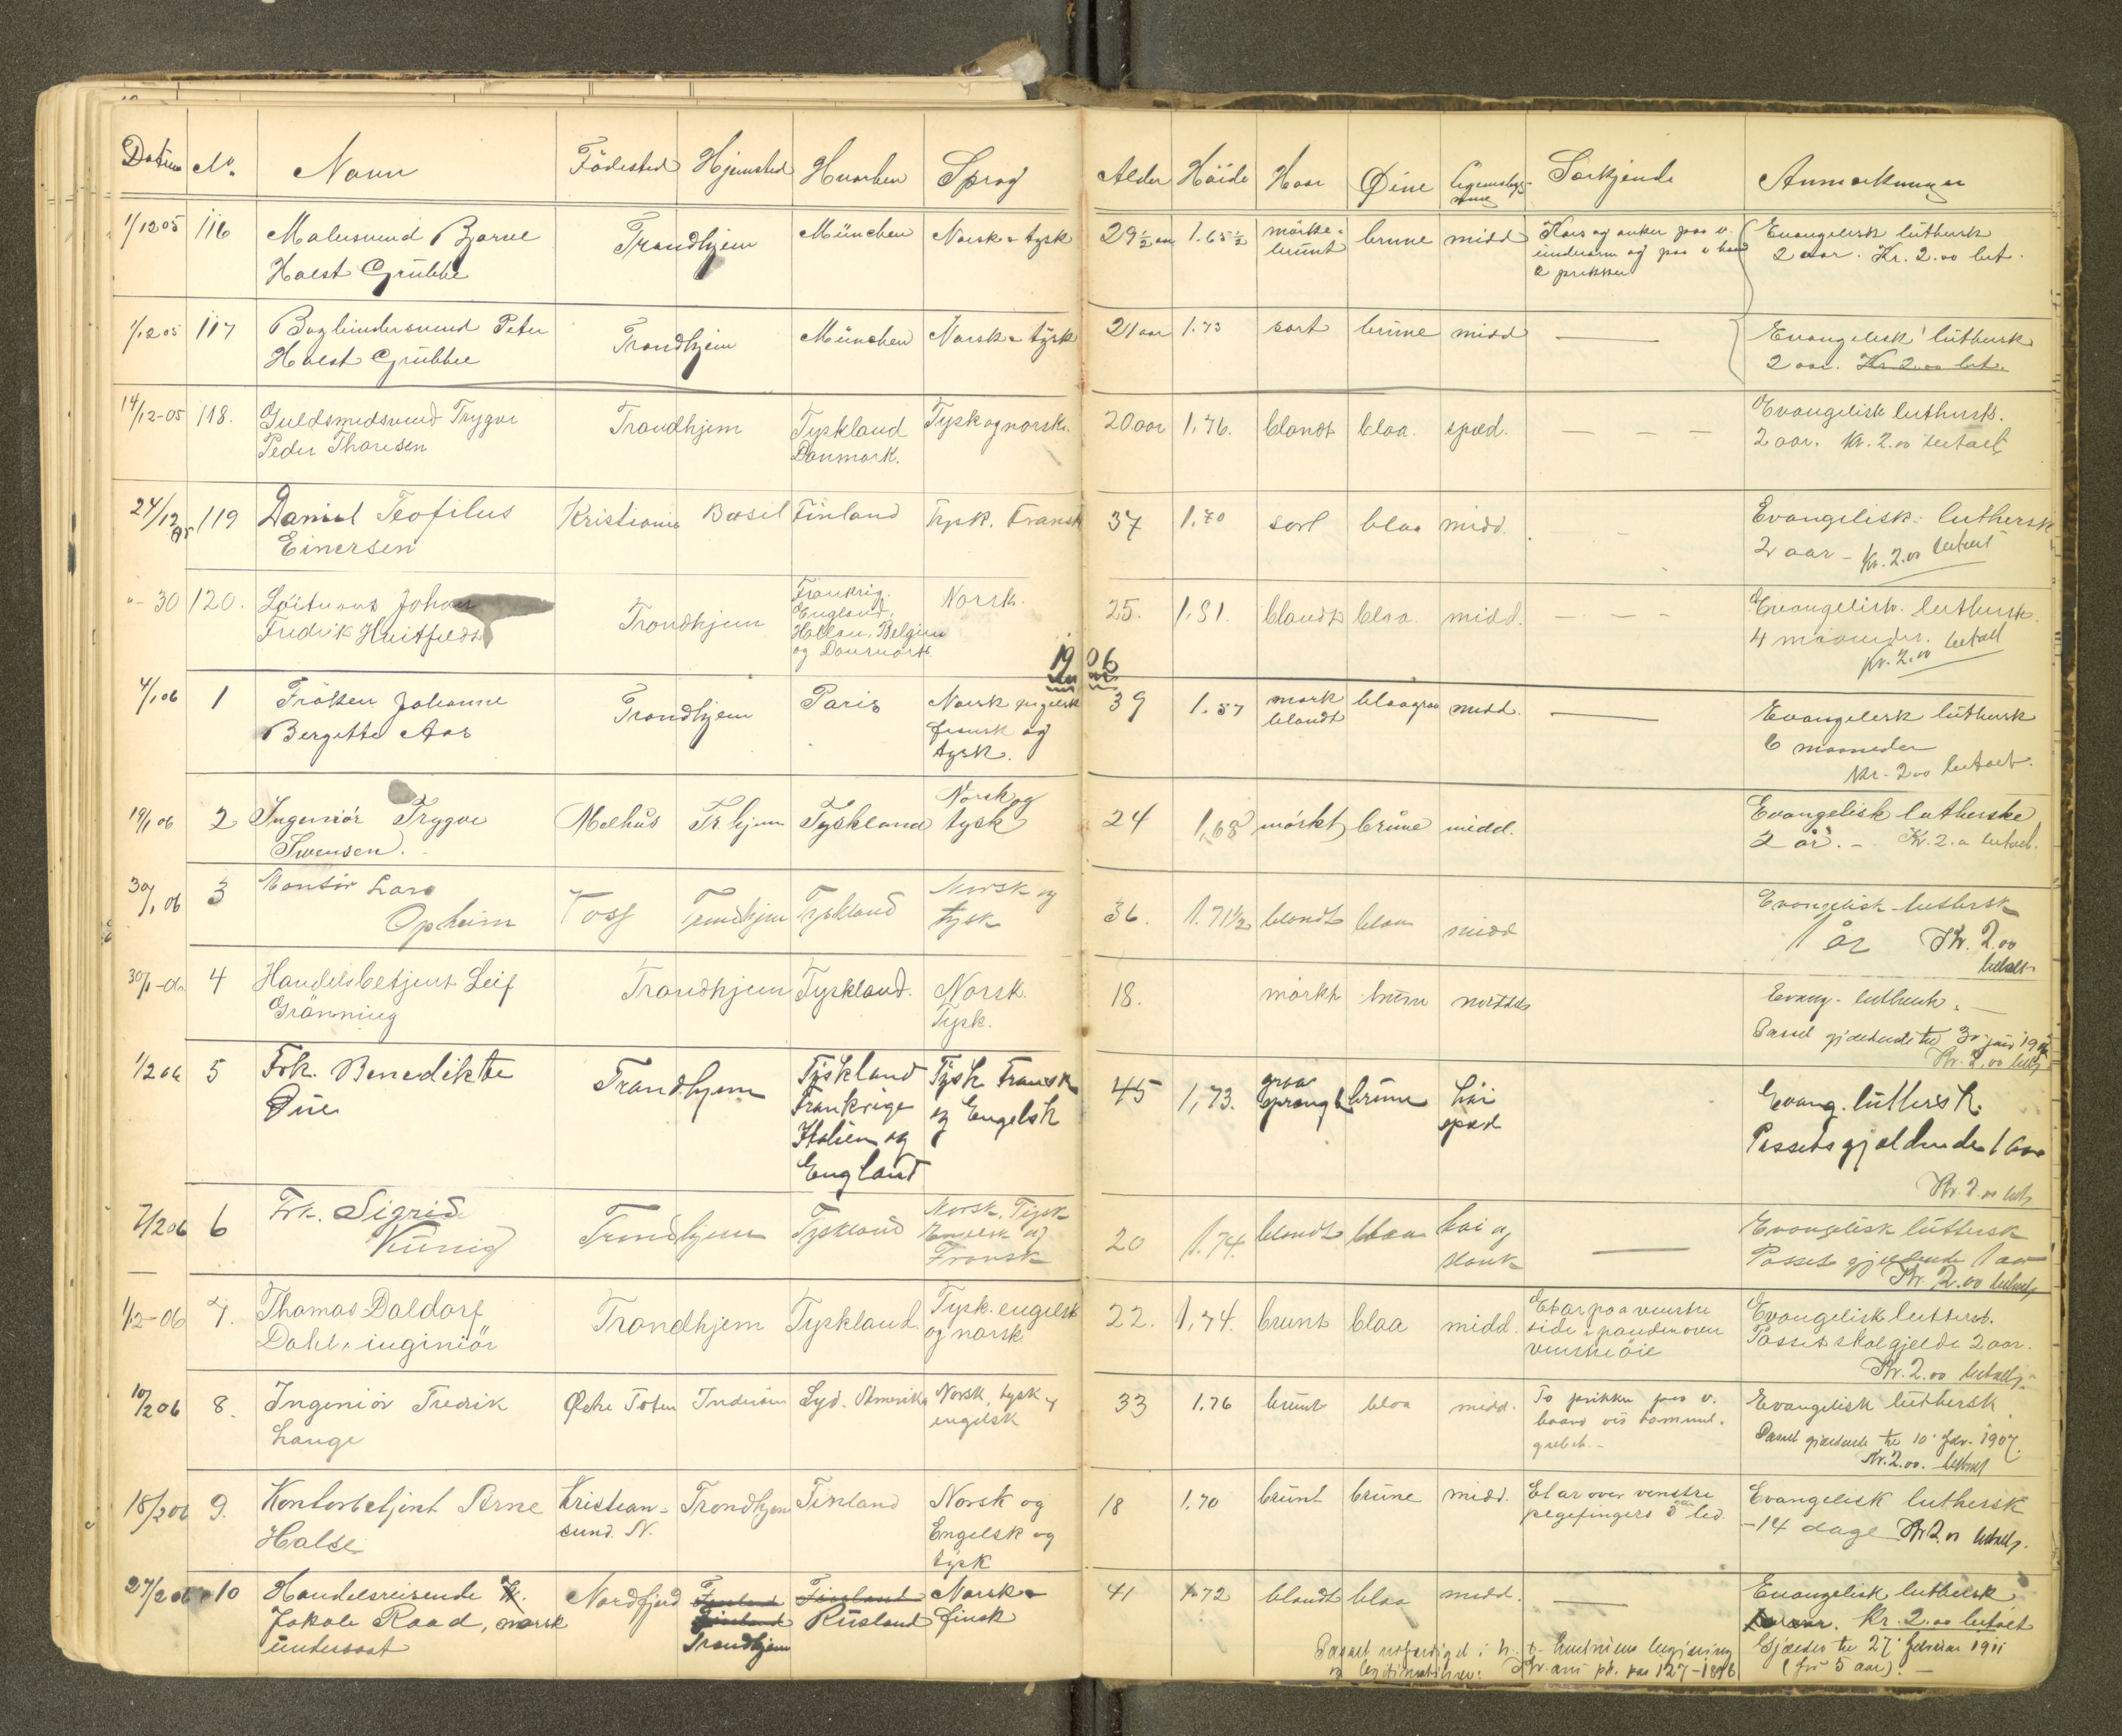 Datum No. Navn Födested Hjemsted Hvorhen Sprog Alder Höide Haar Øine Legemsbygning Særkjende Anmærkninger
1/12 05 116 Malersvend Bjarne Trondhjem München Norsk & tysk 29 1/2 aar 1.65 1/2 mørke- brune midd Kors og anker paa v. Evangelisk luthersk
Holst Grubbe brunt underarm og paa v haand 2 aar. Kr. 2.00 bet.
2 prikker
1/12 05 117 Bogbindersvend Peter Trondhjem München Norsk & tysk 21 aar 1.73 sort brune midd — Evangelisk luthersk
Holst Grubbe 2 aar. Kr 2.00 bet.
14/12-05 118. Guldsmedsvend Trygve Trondhjem Tyskland Tysk og norsk. 20 aar 1.76. blondt blaa. spæd. — — — Evangelisk luthersk.
Peder Thoresen Danmark. 2 aar. Kr. 2.00 betalt
24/12 05 119 Daniel Teofilus Kristiania Basel Finland Tysk. Fransk 37 1.70 sort blaa midd. Evangelisk luthersk
Einersen 2 aar - Kr. 2.00 betalt
"- 30 120. Löitnant Johan Trondhjem Frankrig. Norsk. 25. 1.81. blondt blaa. midd. — — — Evangelisk. luthersk.
Fredrik Huitfeldt England, 4 maaneder. betalt
Hollan. Belgien Kr. 2.00
og Danmark.
1906
4/1 06 1 Fröken Johanne Trondhjem Paris Norsk engelsk 39 1.57 mørk blaagraa midd. — Evangelisk luthersk
Bergitte Aas fransk og blondt 6 maaneder
tysk. Kr. 2.00 betalt.
19/1 06 2 Ingeniör Trygve Melhus Trhjem Tyskland Norsk og 24 1,68 mörkt brune midd. Evangelisk lutherske
Svensen. tysk 2 år. - Kr. 2.00 betalt.
30/1 06 3 Montör Lars Voss Trondhjem Tyskland Norsk og 36. 1.71 1/2 blondt blaa midd Evangelisk-luthersk
Opheim tysk 1 år Kr. 2.00
betalt
30/1-06 4 Handelsbetjent Leif Trondhjem Tyskland. Norsk. 18. mørkt brune middels Evang. luthersk.
Grönning Tysk. Passet gjældende til 30 juni 1906
Kr. 2.00 bet.
1/2 06 5 Frk. Benedikte Trondhjem Tyskland Tysk Fransk 45 1,73. graa brune höi Evang. luthersk.
Due Frankrige og Engelsk sprængt spæd Passets gjældende 1 aar
Italien og Kr. 2.00 bet.
England
7/2 06 6 Frk. Sigrid Trondhjem Tyskland Norsk. Tysk 20 1.74. blondt blaa höi og — Evangelisk luthersk
Künig Engelsk og slank Passet gjældende 1 aar
Fransk Kr. 2.00 betalt
1/2-06 7. Thomas Daldorf Trondhjem Tyskland. Tysk. engelsk 22. 1,74. brunt blaa midd. Et ar paa venstre Evangelisk luthersk.
Dahl, ingeniör og norsk side i panden over Passet skal gjelde 2 aar.
venstre öie Kr. 2.00 betalt
10/2 06 8. Ingeniör Fredrik Østre Toten Inderöen Syd. Amerika Norsk, tysk og 33 1.76 brunt blaa midd. To prikker paa v. Evangelisk luthersk
Lange engelsk haand ved tommel- Passet gjældende til 10' febr. 1907.
grebet. - Kr. 2.00. betalt
18/2 06 9. Kontorbetjent Arne Kristian- Trondhjem Finland Norsk og 18 1,70 brunt brune midd. Et ar over venstre Evangelisk luthersk
Halse sund. N. Engelsk og pegefingers 3 led. - 14 dage Kr 2.00 betalt.
tysk
27/2 06 10 Handelsreisende Nordfjord Finland Norsk & 41 1.72 blondt blaa midd. — Evangelisk luthersk
Jakob Raad, norsk Trondhjem Rusland finsk aar. Kr. 2.00 betalt
undersaat Gjælder til 27' februar 1911
Passet utfærdiget i h. t. (for 5 aar). -
og legitimationer: 127-1896